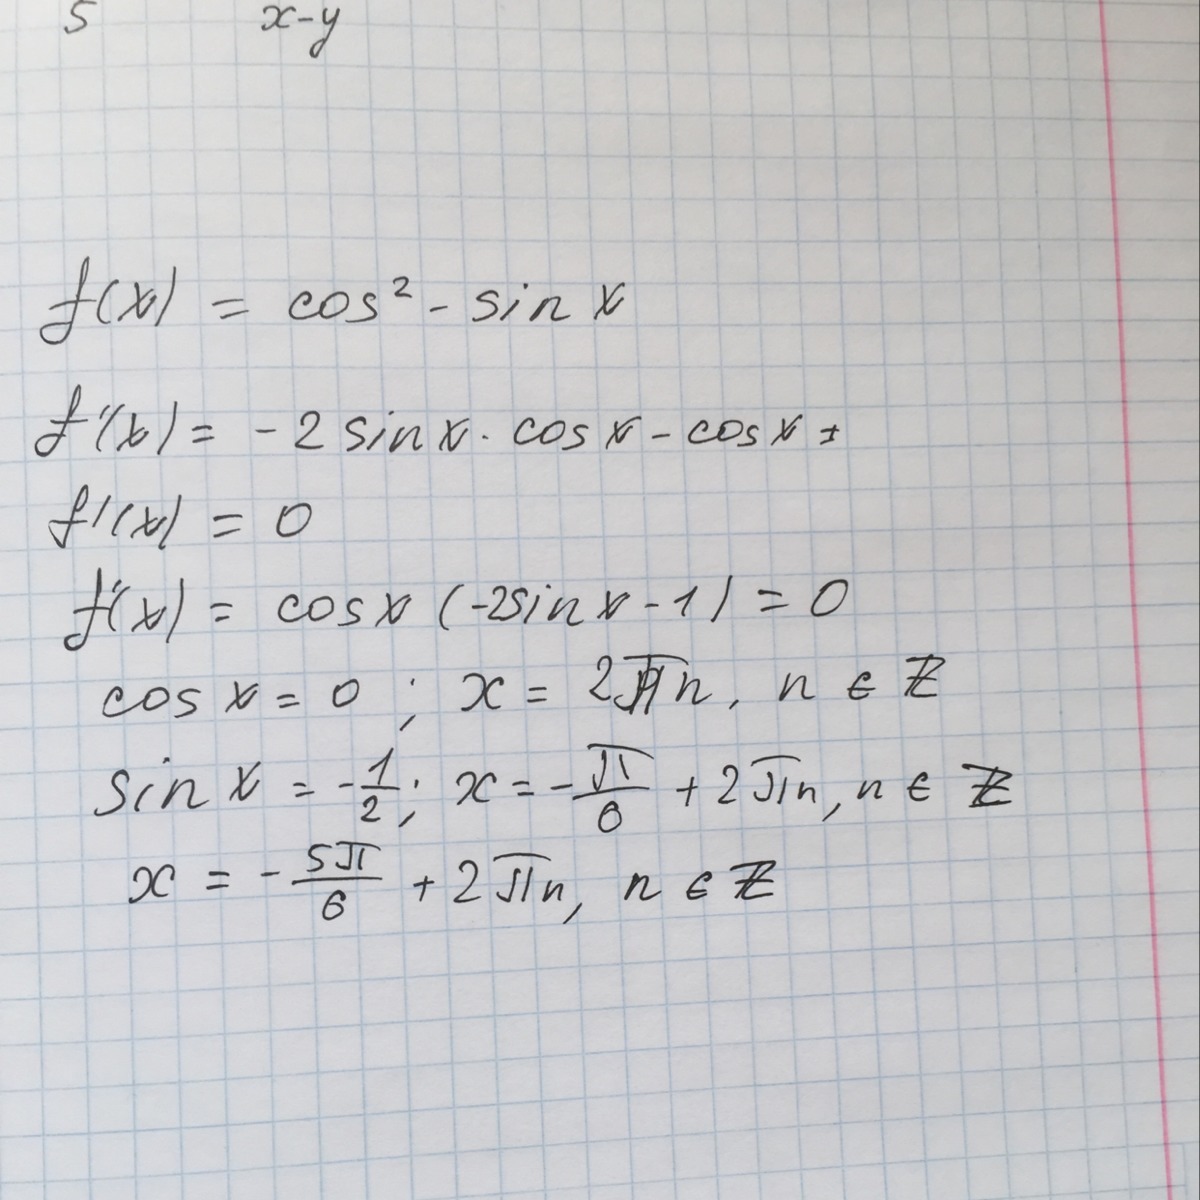 5 x-y
f(x) = cos² - sin x
f'(x) = - 2 sin x · cos x - cos x =
f'(x) = 0
f'(x) = cos x (-2sin x - 1) = 0
cos x = 0 ; x = 2πn, n ∈ Z
sin x = -1/2; x = -π/6 + 2πn, n ∈ Z
x = - 5π/6 + 2πn, n ∈ Z